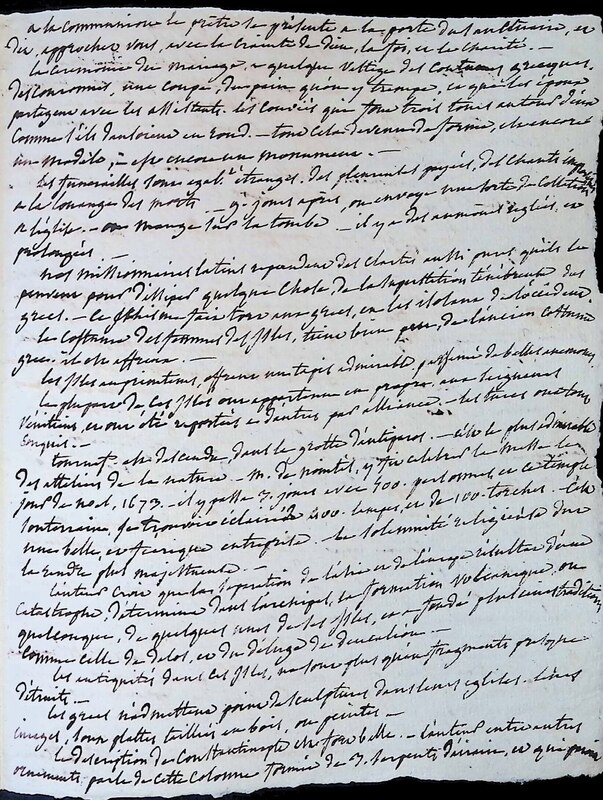 a la communion le prêtre se présente a la porte du sanctuaire, et
dit, approchez vous, avec la crainte de dieu, la foi, et la charité. —
la ceremonie du mariage a quelque vestige des coutumes grecques.
des couronnes, une coupe, du pain qu'on y trempe, et que les époux
partagent avec les assistents. les conviés qui font trois tours autour d'eux
comme s'ils dansoient en rond. — tout cela devenu de forme, est encore
un modele, — est encore un monument. —
les funerailles sont egalt étranges. des pleureuses payées, des chants
a la louange des morts — 9. jours apres, on envoye une sorte de
a l'église. — on mange sur la tombe — il y a des aumones réglées, et
prolongées —
nos missionnaires latins repandent des clartés aussi pures qu'ils le
peuvent pour dissiper quelque chose de la superstition ténébreuse des
grecs. — ce schisme fait tort aux grecs, en les isolant de l'occident.
le costume des femmes des isles, tient bien peu, de l'ancien costume
grec. il est affreux. —
les isles au printems, offrent un tapis admirable, parfumé de belles anemones.
la plupart de ces isles ont appartenu en propre, aux seigneurs
Vénitiens, et ont été reportées a d'autres par alliance. — les turcs ont tout
conquis. —
tournef. est descendu dans la grotte d'antiparos. — c'est le plus admirable
des atteliers de la nature — M. de nointel, y fit celebrer la messe le
jour de noel, 1673. — il y passa 3. jours avec 500. personnes, et ce temple
souterrain, se trouvoit éclairé de 400. lampes, et de 100. torches. — c'est
une belle, et feerique entreprise — la solemnité religieuse dut
la rendre plus majestueuse. —
l'auteur croit que la séparation de l'asie et de l'europe résultat d'une
catastrophe, determina dans l'archipel, la formation volcanique, ou
quelconque, de quelques unes de ses isles, et a fondé plusieurs traditions
comme celle de delos, et du deluge de deucalion. —
les antiquités dans ces isles, ne sont plus qu'en fragments presque
détruits. —
les grecs n'admettent point de sculptures dans leurs eglises. leurs
images, sont plattes taillées en bois, ou peintes —
la description de Constantinople est fort belle. — l'auteur entre autres
ornements parle de cette colonne formée de 3. serpents d'airain, et que